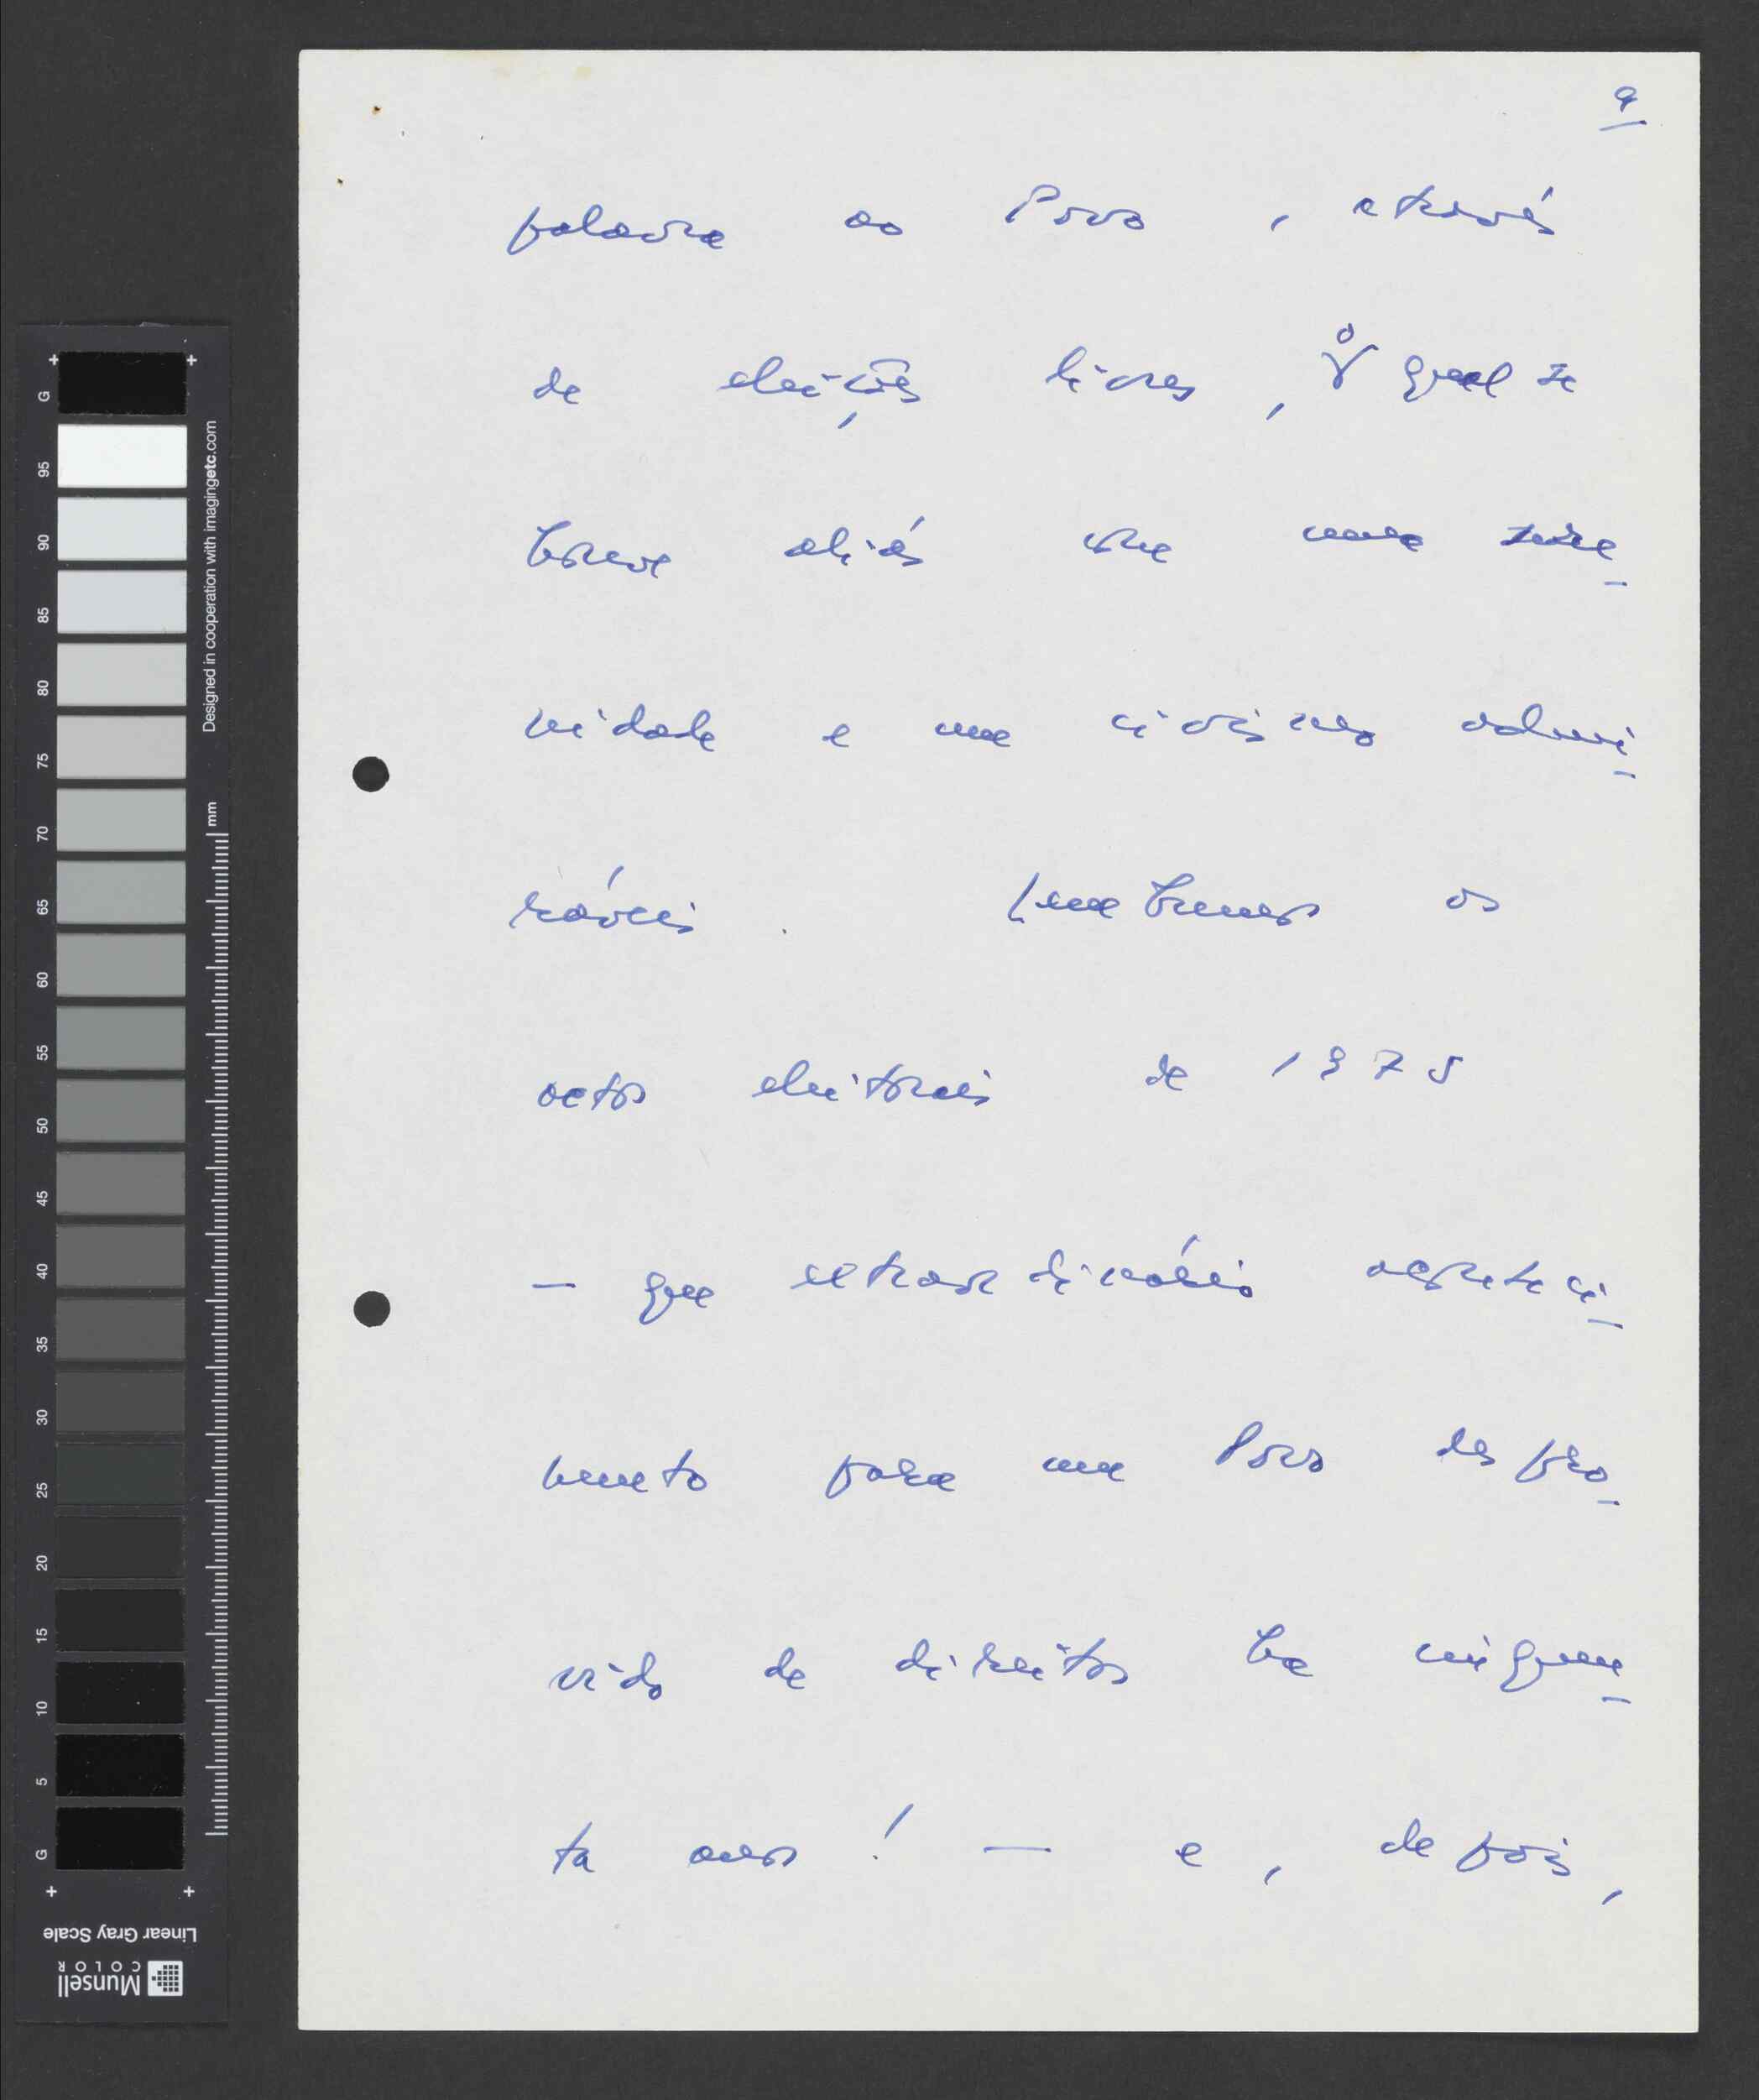 9
palavra ao Povo, através
de eleições livres, o qual se
houve aliás com uma sere_
nidade e um civismo admi_
ráveis. Lembremos os
actos eleitorais de 1975
— que extraordinário aconteci_
mento para um Povo despro_
vido de direitos há cinquen_
ta anos! — e, depois,
G
95
90
85
80
75
70
65
60
55
50
45
40
35
30
25
20
15
10
5
G
Designed in cooperation with imagingetc.com
mm
Linear Gray Scale
Munsell
COLOR